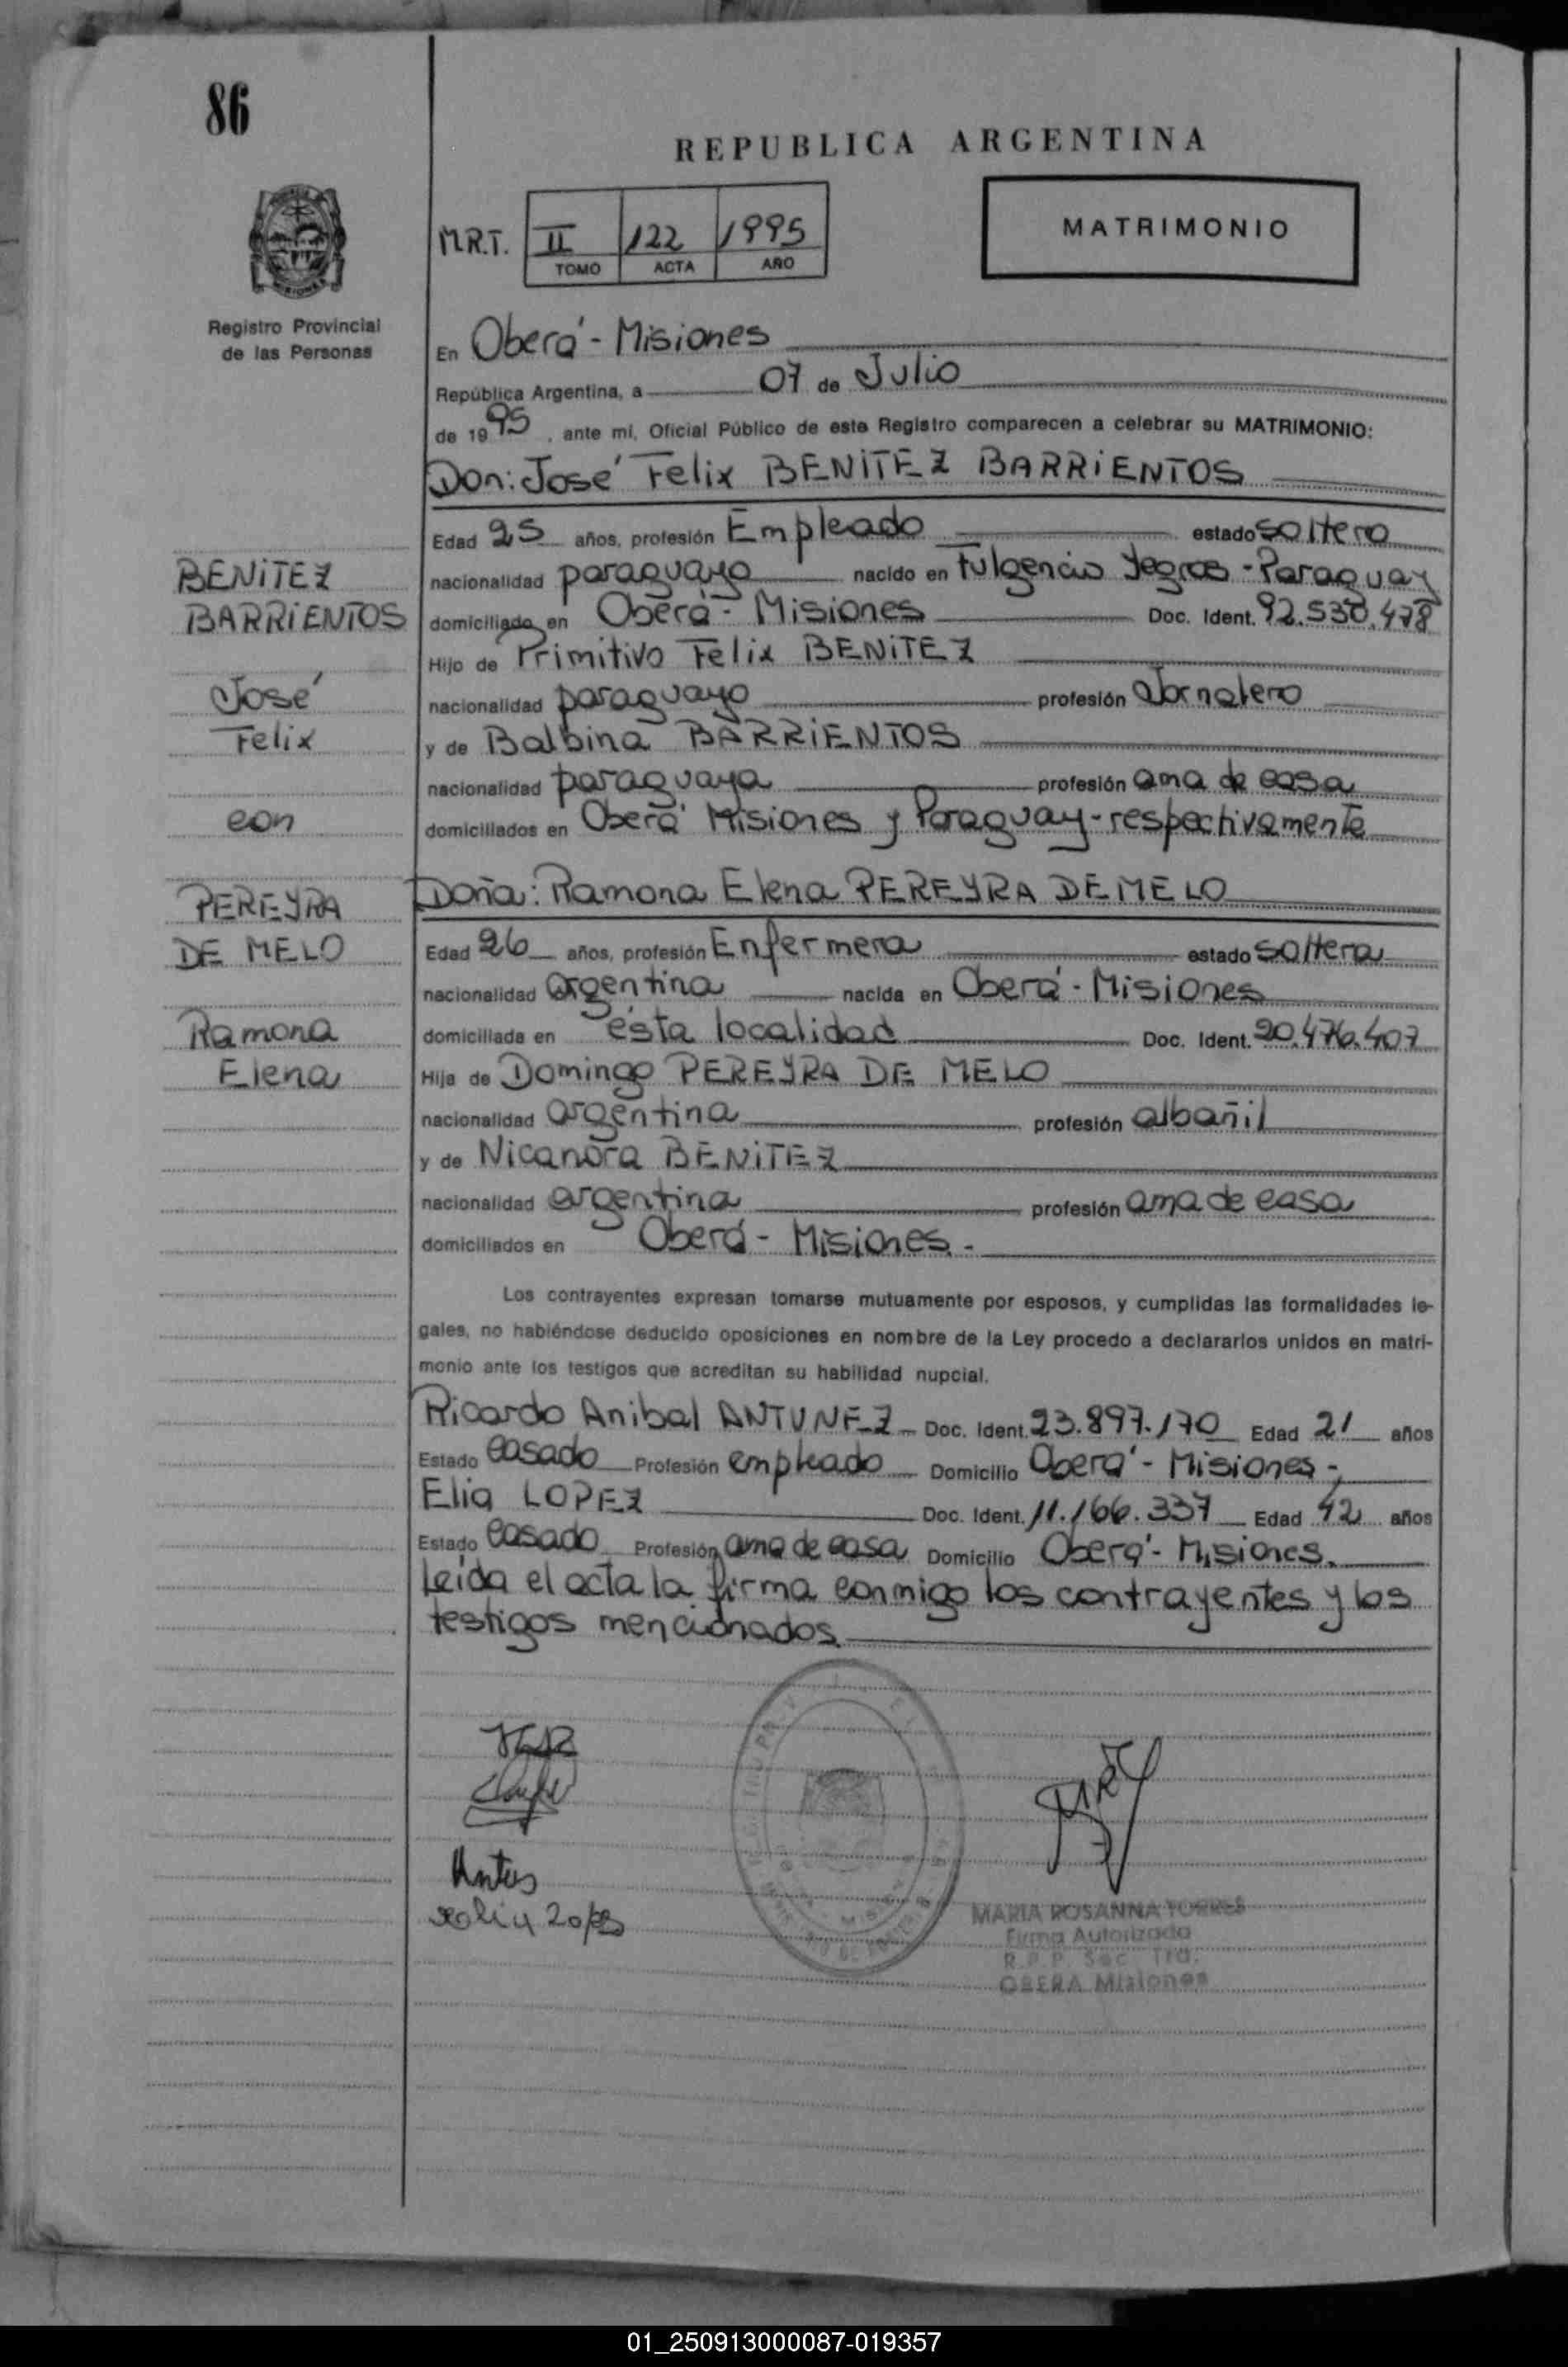 86
REPUBLICA ARGENTINA
M.R.T. II 122 1995
TOMO ACTA AÑO
MATRIMONIO
Registro Provincial
de las Personas
En Oberá - Misiones
República Argentina, a 07 de Julio
de 1995, ante mí, Oficial Público de este Registro comparecen a celebrar su MATRIMONIO:
Don: José Felix BENITEZ BARRIENTOS
Edad 25 años, profesión Empleado estado soltero
nacionalidad paraguayo nacido en Fulgencio Yegros - Paraguay
domiciliado en Oberá - Misiones Doc. Ident. 92.530.478
Hijo de Primitivo Felix BENITEZ
nacionalidad paraguayo profesión Jornalero
y de Balbina BARRIENTOS
nacionalidad paraguaya profesión ama de casa
domiciliados en Oberá Misiones y Paraguay - respectivamente
BENITEZ
BARRIENTOS
José
Felix
con
PEREYRA
DE MELO
Ramona
Elena
Doña: Ramona Elena PEREYRA DE MELO
Edad 26 años, profesión Enfermera estado soltera
nacionalidad argentina nacida en Oberá - Misiones
domiciliada en ésta localidad Doc. Ident. 20.476.407
Hija de Domingo PEREYRA DE MELO
nacionalidad argentina profesión albañil
y de Nicanora BENITEZ
nacionalidad argentina profesión ama de casa
domiciliados en Oberá - Misiones.-
Los contrayentes expresan tomarse mutuamente por esposos, y cumplidas las formalidades le-
gales, no habiéndose deducido oposiciones en nombre de la Ley procedo a declararlos unidos en matri-
monio ante los testigos que acreditan su habilidad nupcial.
Ricardo Anibal ANTUNEZ Doc. Ident. 23.897.170 Edad 21 años
Estado casado Profesión empleado Domicilio Oberá - Misiones -
Elia LOPEZ Doc. Ident. 11.166.337 Edad 42 años
Estado casado Profesión ama de casa Domicilio Oberá - Misiones.
Leída el acta la firma conmigo los contrayentes y los
testigos mencionados
MARIA ROSANNA TORRES
Firma Autorizada
R.P.P. Sec. 1ra.
OBERA Misiones
01_250913000087-019357